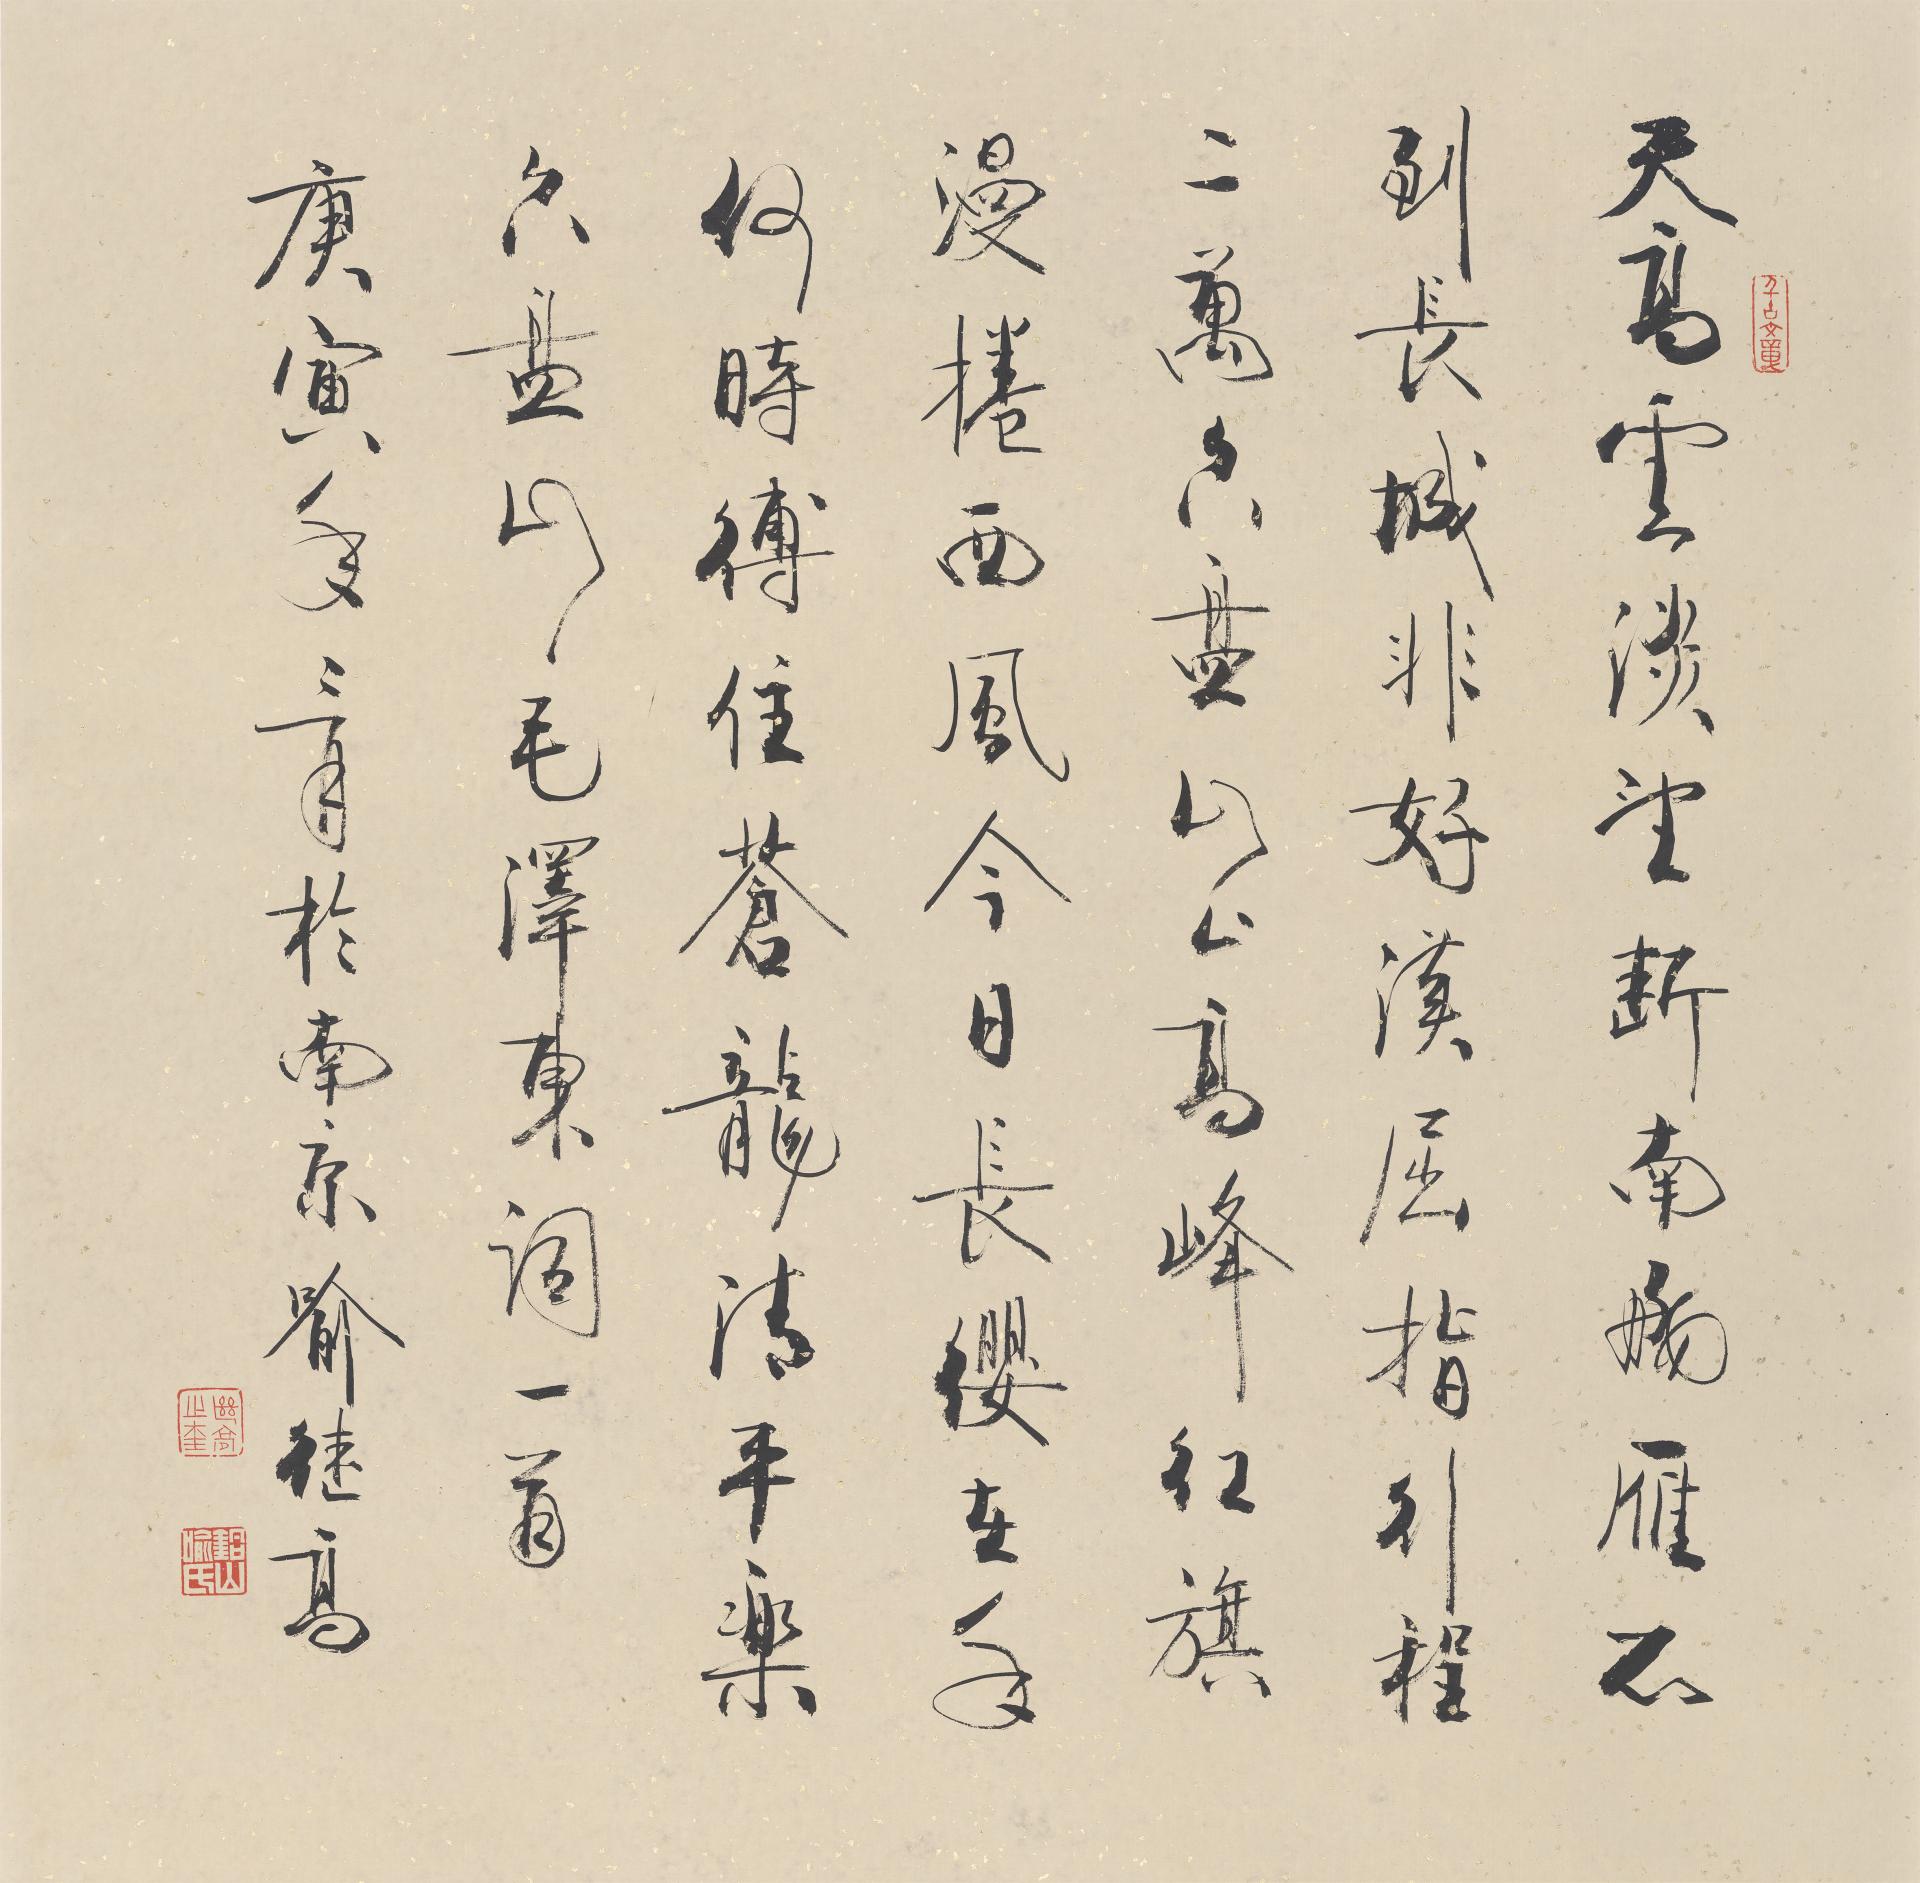 天高雲淡望斷南飛雁不
到長城非好漢屈指行程
二萬六盤山上高峰紅旗
漫捲西風今日長纓在手
何時縛住蒼龍清平樂
六盤山毛澤東詞一首
庚寅年三月於南京喻继高